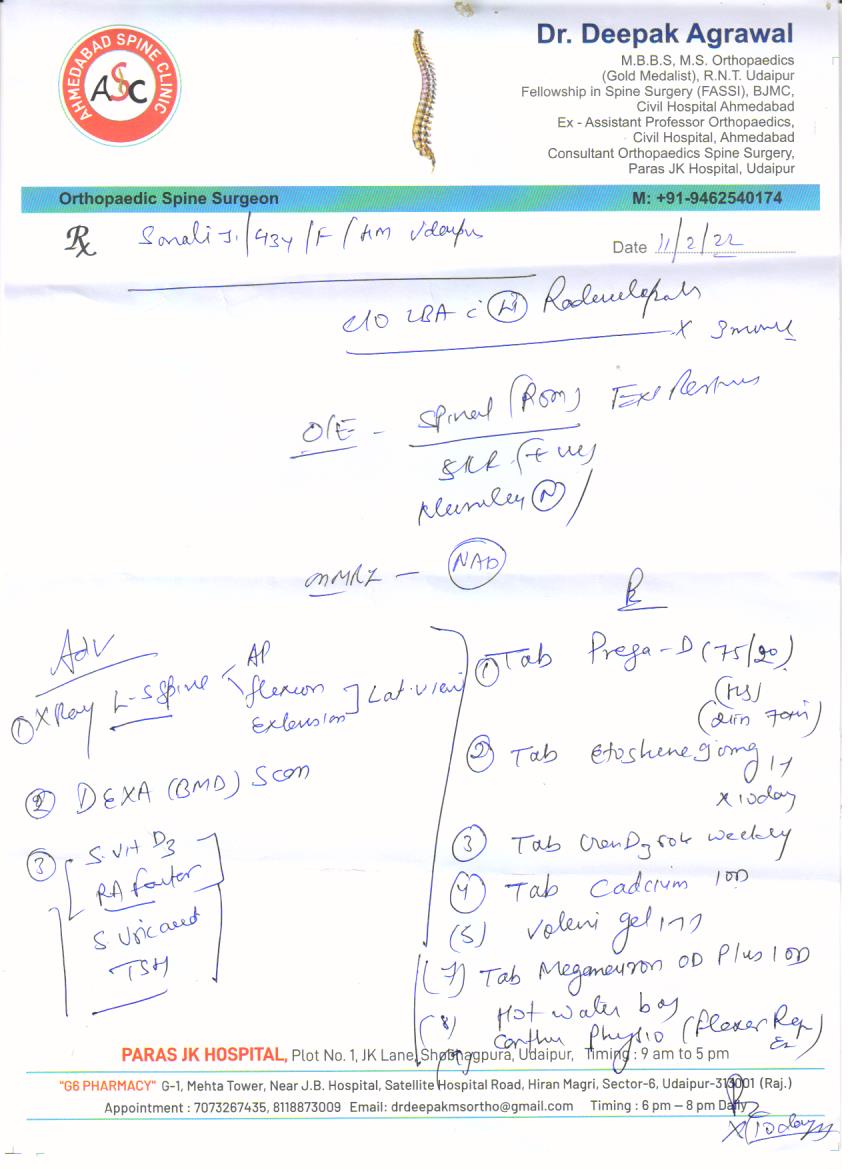 AHMEDABAD SPINE CLINIC
ASC
Dr. Deepak Agrawal
M.B.B.S, M.S. Orthopaedics
(Gold Medalist), R.N.T. Udaipur
Fellowship in Spine Surgery (FASSI), BJMC,
Civil Hospital Ahmedabad
Ex - Assistant Professor Orthopaedics,
Civil Hospital, Ahmedabad
Consultant Orthopaedics Spine Surgery,
Paras JK Hospital, Udaipur
Orthopaedic Spine Surgeon
M: +91-9462540174
Rx Sonali J. / 43y / F / Udaipur
Date 11/2/22
c/o LBA c
X 3
O/E - Spinal (ROM)
SLR (+ve)
(N)
MRI - NAD
Adv
① X Ray L-S Spine
AP
flexion
Extension
] Lat. view
② DEXA (BMD) Scan
③ S. Vit D3
RA factor
S. Uric acid
TSH
Rx
① Tab Prega-D (75/20)
(HS)
② Tab 90mg
X 10 day
③ Tab weekly
④ Tab Cadcium 1 OD
(5) Volini gel
(7) Tab Meganeuron OD Plus 1 OD
(8) Hot water bag
Physio (
PARAS JK HOSPITAL, Plot No. 1, JK Lane, Shobhagpura, Udaipur, Timing : 9 am to 5 pm
"G6 PHARMACY" G-1, Mehta Tower, Near J.B. Hospital, Satellite Hospital Road, Hiran Magri, Sector-6, Udaipur-313001 (Raj.)
Appointment : 7073267435, 8118873009 Email: drdeepakmsortho@gmail.com Timing : 6 pm – 8 pm Daily
X 10 days